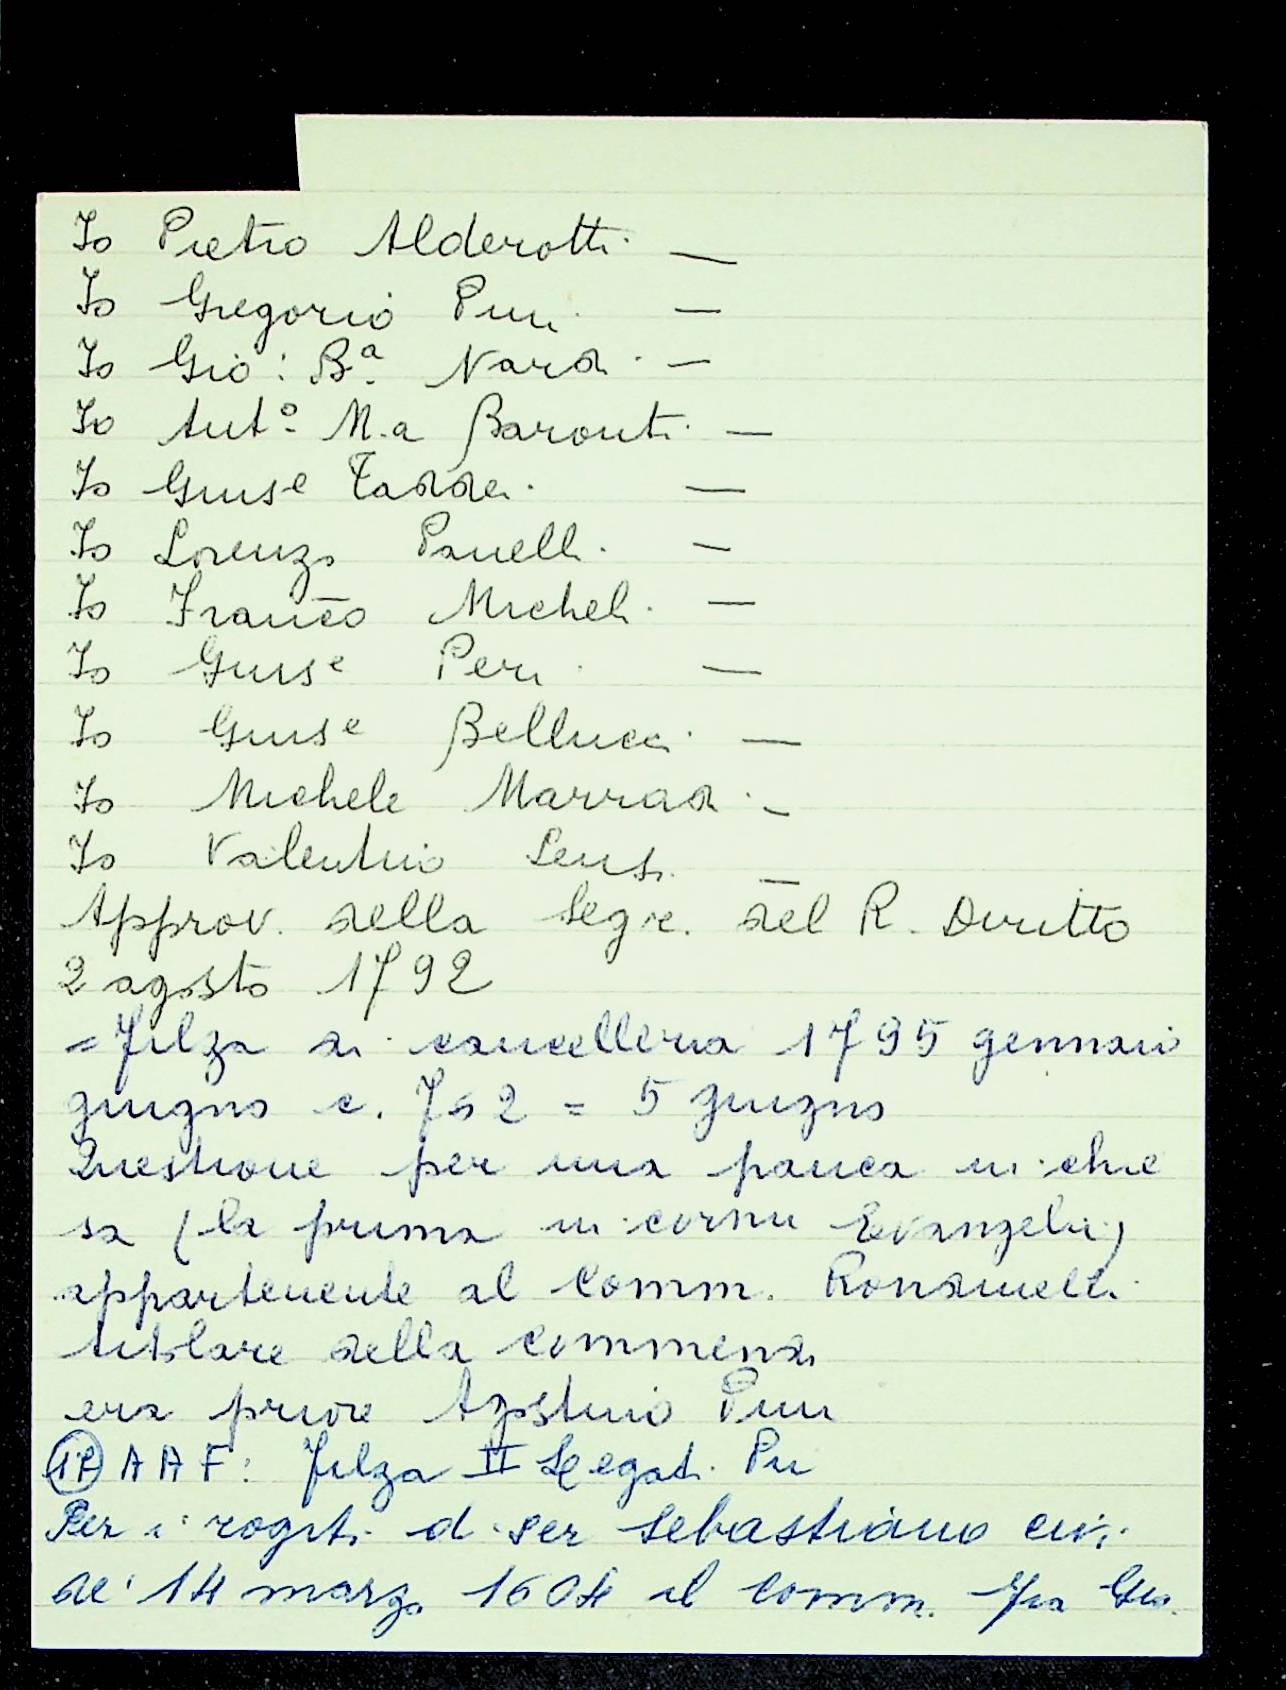 Io Pietro Alderotti —
Io Gregorio Pini —
Io Gio: Bª Nardi —
Io Antº M.a Baronti —
Io Giuse Taddei —
Io Lorenzo Panelli —
Io Franco Micheli —
Io Giuse Peri —
Io Giuse Bellucci —
Io Michele Marradi —
Io Valentino Sensi —
Approv. della Segr. del R. Diritto
2 agosto 1792
= Filza di cancelleria 1795 gennaio
giugno c. 762 = 5 giugno
Questione per una panca in chie
sa (la prima in cornu Evangelii)
appartenente al Comm. Rondinelli
titolare della commenda
era priore Agostino Pini
AAF: Filza II Legati Pii
Per i rogiti di ser Sebastiano
de' 14 marzo 1604 il Comm. fra Gio.